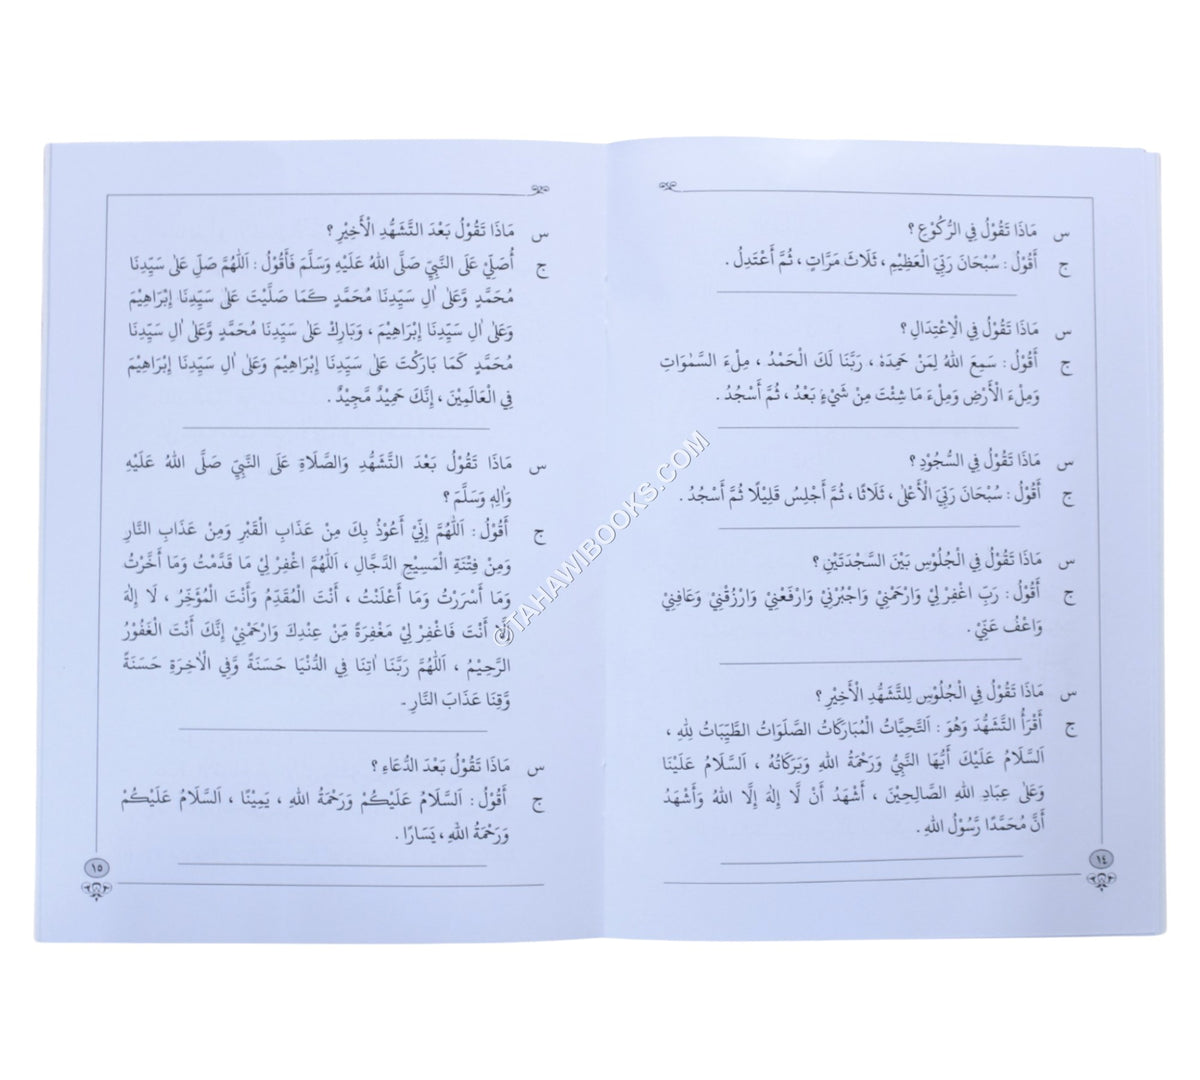 س مَاذَا تَقُوْلُ فِي الرُّكُوْعِ ؟
ج أَقُوْلُ : سُبْحَانَ رَبِّيَ الْعَظِيْمِ ، ثَلَاثَ مَرَّاتٍ ، ثُمَّ أَعْتَدِلُ .
س مَاذَا تَقُوْلُ فِي الْاِعْتِدَالِ ؟
ج أَقُوْلُ : سَمِعَ اللهُ لِمَنْ حَمِدَهْ ، رَبَّنَا لَكَ الْحَمْدُ ، مِلْءَ السَّمٰوَاتِ
وَمِلْءَ الْأَرْضِ وَمِلْءَ مَا شِئْتَ مِنْ شَيْءٍ بَعْدُ ، ثُمَّ أَسْجُدُ .
س مَاذَا تَقُوْلُ فِي السُّجُوْدِ ؟
ج أَقُوْلُ : سُبْحَانَ رَبِّيَ الْأَعْلٰى ، ثَلَاثًا ، ثُمَّ أَجْلِسُ قَلِيْلًا ثُمَّ أَسْجُدُ .
س مَاذَا تَقُوْلُ فِي الْجُلُوْسِ بَيْنَ السَّجْدَتَيْنِ ؟
ج أَقُوْلُ : رَبِّ اغْفِرْ لِيْ وَارْحَمْنِيْ وَاجْبُرْنِيْ وَارْفَعْنِيْ وَارْزُقْنِيْ وَعَافِنِيْ
وَاعْفُ عَنِّيْ .
س مَاذَا تَقُوْلُ فِي الْجُلُوْسِ لِلتَّشَهُّدِ الْأَخِيْرِ ؟
ج أَقْرَأُ التَّشَهُّدَ وَهُوَ : اَلتَّحِيَّاتُ الْمُبَارَكَاتُ الصَّلَوَاتُ الطَّيِّبَاتُ لِلّٰهِ ،
اَلسَّلَامُ عَلَيْكَ أَيُّهَا النَّبِيُّ وَرَحْمَةُ اللهِ وَبَرَكَاتُهُ ، اَلسَّلَامُ عَلَيْنَا
وَعَلٰى عِبَادِ اللهِ الصَّالِحِيْنَ ، أَشْهَدُ أَنْ لَّا إِلٰهَ إِلَّا اللهُ وَأَشْهَدُ
أَنَّ مُحَمَّدًا رَّسُوْلُ اللهِ .
١٤
س مَاذَا تَقُوْلُ بَعْدَ التَّشَهُّدِ الْأَخِيْرِ ؟
ج أُصَلِّيْ عَلَى النَّبِيِّ صَلَّى اللهُ عَلَيْهِ وَسَلَّمَ فَأَقُوْلُ : اَللّٰهُمَّ صَلِّ عَلٰى سَيِّدِنَا
مُحَمَّدٍ وَّعَلٰى اٰلِ سَيِّدِنَا مُحَمَّدٍ كَمَا صَلَّيْتَ عَلٰى سَيِّدِنَا إِبْرَاهِيْمَ
وَعَلٰى اٰلِ سَيِّدِنَا إِبْرَاهِيْمَ ، وَبَارِكْ عَلٰى سَيِّدِنَا مُحَمَّدٍ وَّعَلٰى اٰلِ سَيِّدِنَا
مُحَمَّدٍ كَمَا بَارَكْتَ عَلٰى سَيِّدِنَا إِبْرَاهِيْمَ وَعَلٰى اٰلِ سَيِّدِنَا إِبْرَاهِيْمَ
فِي الْعَالَمِيْنَ ، إِنَّكَ حَمِيْدٌ مَّجِيْدٌ .
س مَاذَا تَقُوْلُ بَعْدَ التَّشَهُّدِ وَالصَّلَاةِ عَلَى النَّبِيِّ صَلَّى اللهُ عَلَيْهِ
وَاٰلِهٖ وَسَلَّمَ ؟
ج أَقُوْلُ : اَللّٰهُمَّ إِنِّيْ أَعُوْذُ بِكَ مِنْ عَذَابِ الْقَبْرِ وَمِنْ عَذَابِ النَّارِ
وَمِنْ فِتْنَةِ الْمَسِيْحِ الدَّجَّالِ ، اَللّٰهُمَّ اغْفِرْ لِيْ مَا قَدَّمْتُ وَمَا أَخَّرْتُ
وَمَا أَسْرَرْتُ وَمَا أَعْلَنْتُ ، أَنْتَ الْمُقَدِّمُ وَأَنْتَ الْمُؤَخِّرُ ، لَا إِلٰهَ
إِلَّا أَنْتَ فَاغْفِرْ لِيْ مَغْفِرَةً مِّنْ عِنْدِكَ وَارْحَمْنِيْ إِنَّكَ أَنْتَ الْغَفُوْرُ
الرَّحِيْمُ ، اَللّٰهُمَّ رَبَّنَا اٰتِنَا فِي الدُّنْيَا حَسَنَةً وَّفِي الْاٰخِرَةِ حَسَنَةً
وَّقِنَا عَذَابَ النَّارِ .
س مَاذَا تَقُوْلُ بَعْدَ الدُّعَاءِ ؟
ج أَقُوْلُ : اَلسَّلَامُ عَلَيْكُمْ وَرَحْمَةُ اللهِ ، يَمِيْنًا ، اَلسَّلَامُ عَلَيْكُمْ
وَرَحْمَةُ اللهِ ، يَسَارًا .
١٥
©TAHAWIBOOKS.COM